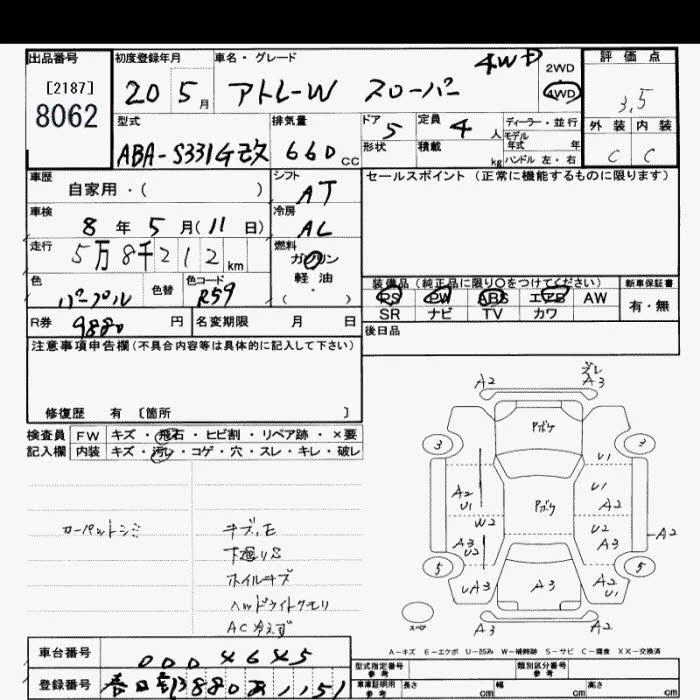 出品番号
[2187]
8062
初度登録年月
20 5 月
車名・グレード
アトレーW スローパー 4WD
2WD
4WD
評価点
3.5
外装 内装
C C
型式
ABA-S331G改
排気量
660 CC
ドア 5
形状
定員 4 人
積載 kg
ディーラー・並行
モデル年式 年
ハンドル 左・右
車歴
自家用・( )
シフト
AT
車検
8 年 5 月( 11 日)
冷房
AC
走行
5万8千212 km
燃料
ガソリン
軽油
( ・ )
色
パープル
色替
色コード
R59
R券 9880 円
名変期限 月 日
セールスポイント (正常に機能するものに限ります)
装備品 (純正品に限り○をつけてください)
PS PW ABS エアB AW
SR ナビ TV カワ
新車保証書
有・無
後日品
注意事項申告欄(不具合内容等は具体的に記入して下さい)
修復歴 有 〔箇所 〕
検査員 記入欄
FW キズ・飛石・ヒビ割・リペア跡・×要
内装 キズ・汚レ・コゲ・穴・スレ・キレ・破レ
カーペットシミ
キズ、E
下廻りS
ホイルキズ
ヘッドライトクモリ
AC冷えず
A2
ズレ
A3
3
3
Aボケ
U1
A2
U1
U1
A2
W2
Aボケ
U2
A3
U2
A3
A2
5
5
UA3
A3
A2
U1
スペア
A3
A2
A-キズ E-エクボ U-凹み W-補修跡 S-サビ C-腐食 XX-交換済
車台番号
0004645
登録番号
春日部 1388
型式指定番号
参考
類別区分番号
参考
車庫証明用
参考
長さ cm
幅 cm
高さ cm